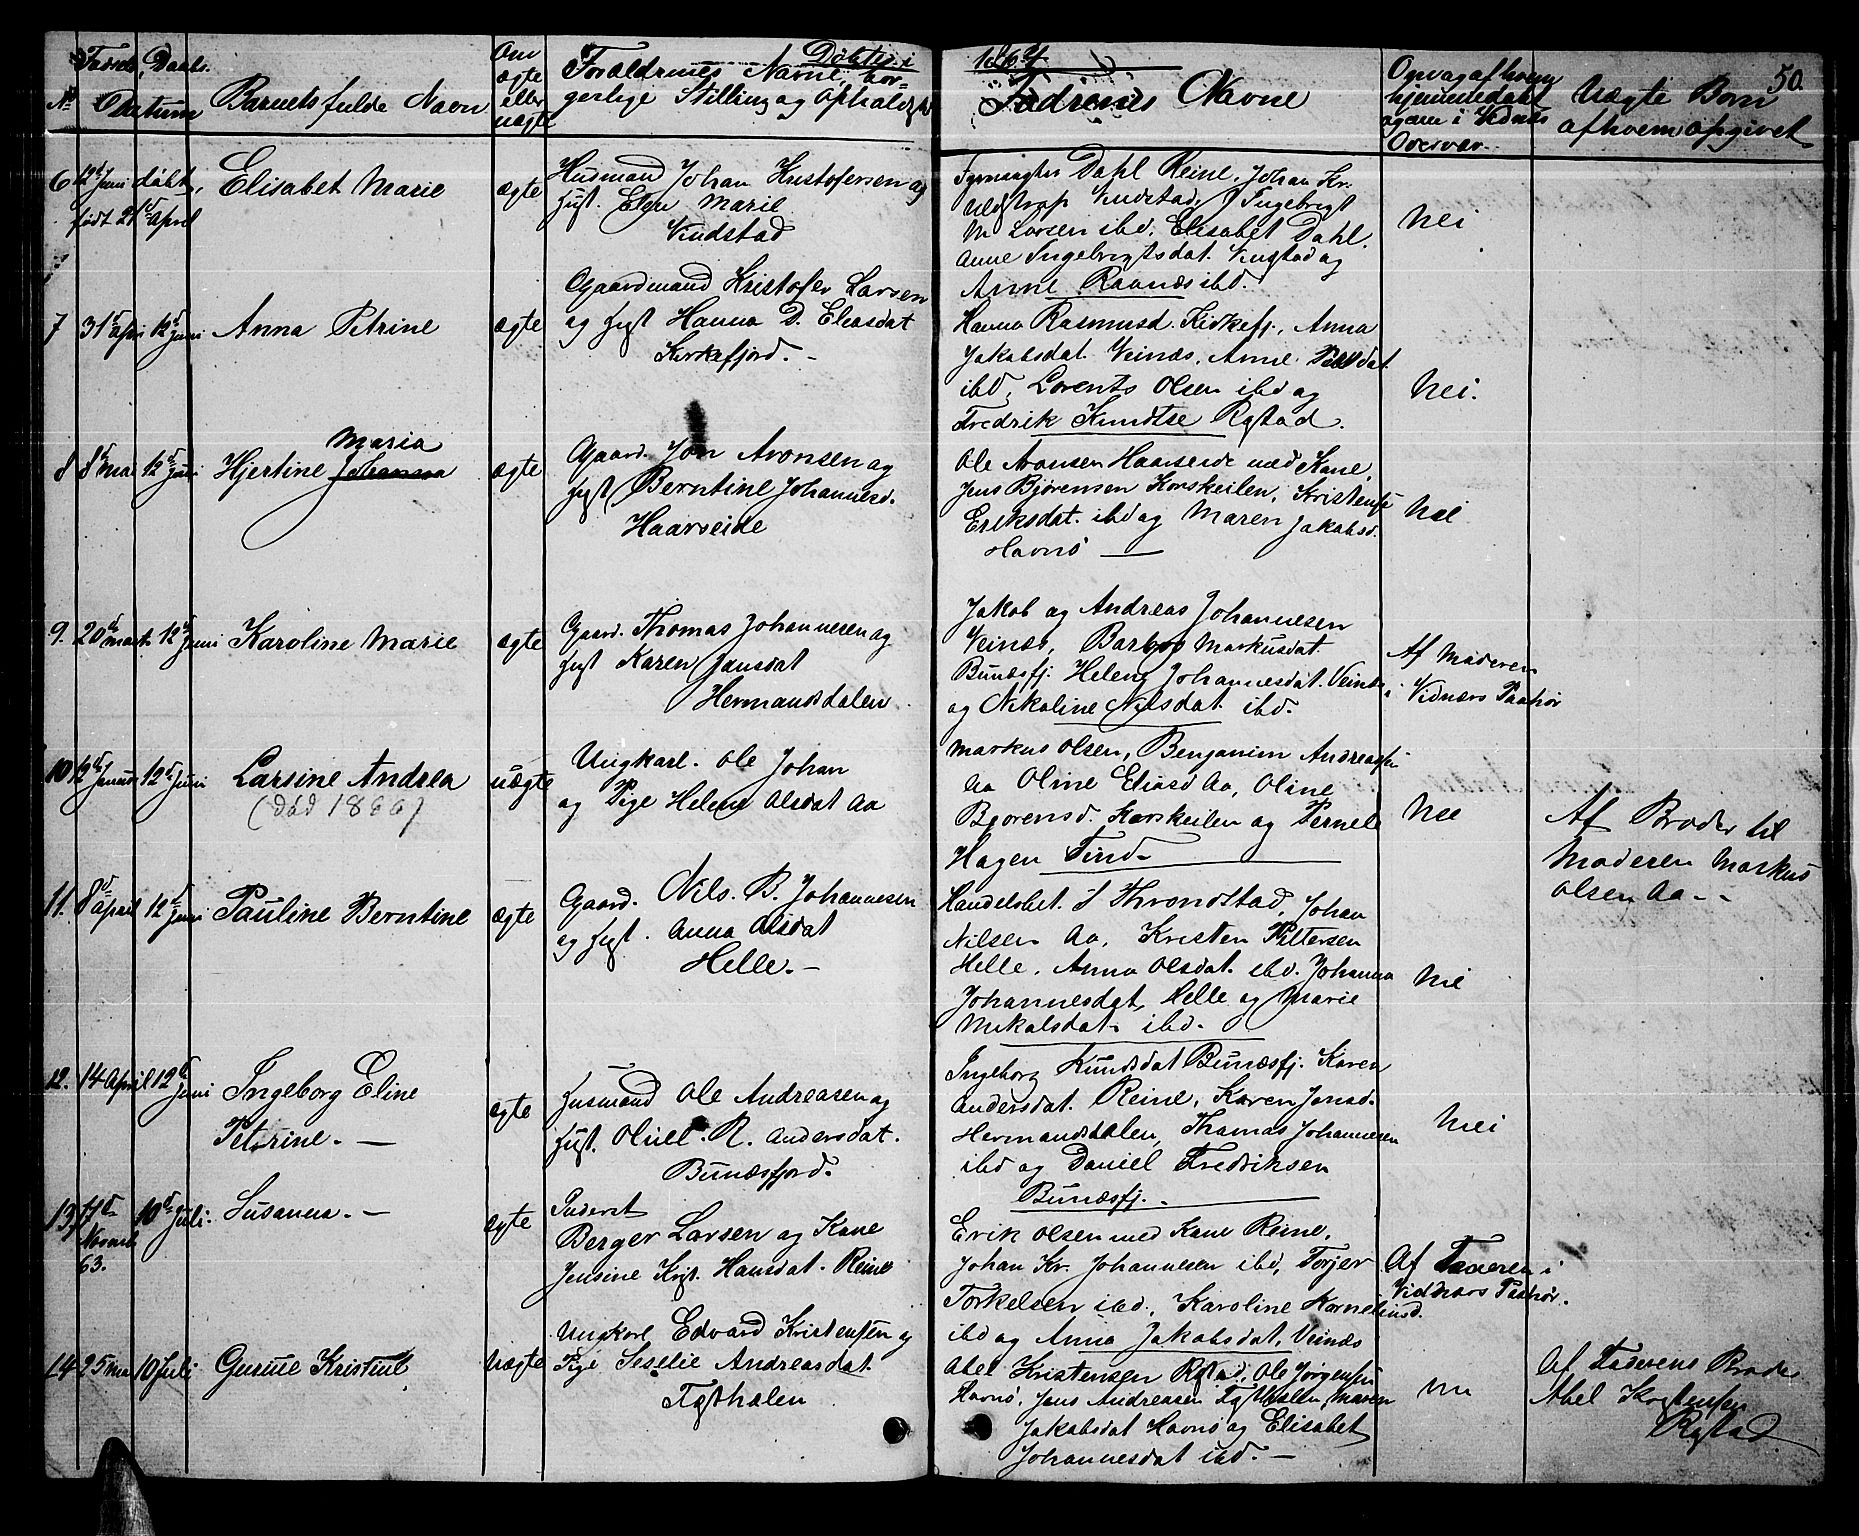 Døbte i 1864
50.
No
Fødsels Daabs
Datum
Barnets fulde Navn
Om
ægte
eller
uægte
Forældrenes Navne, bor-
gerlige Stilling og Ophold
Fadrenes Navne
Opvag af hvem
hjemmedøbt
og om i Vidnes
Overvær
Uægte Børn
af hvem opgivet
6 12d Juni døbt,
født 21d April
Elisabet Marie
ægte
Husmand Johan Kristofersen og
Hust. Elen Marie
Vindstad
Dahl Reine, Johan Kr.
Vindstad, Ingebrigt
M Larsen ibd. Elisabet Dahl.
Anne Ingebrigtsdat. Vinstad og
Anne Ravnæs ibd.
Nei
7 31d April 12d Juni
Anna Petrine
ægte
Gaardmand Kristofer Larsen
og Hust Hanna D. Eliasdat
Kirkefjord. -
Hanna Rasmusd. Kirkefj., Anna
Jakobsdat. Veinæs, Anne
ibd, Lorents Olsen ibd og
Fredrik Knudtse Rystad.
Nei.
8 8d mai 12d Juni
Maria
Hjertine Johanna
ægte
Gaard. Jon Aronsen og
Hust Berntine Johannesd.
Haarseide
Ole Aronsen Haarseide med Kone,
Jens Bjørensen Korskeilen, Kristense
Eriksdat. ibd og Maren Jakobsd.
Havnø
Nei
9. 20de marts 12d Juni
Karoline Marie
ægte
Gaard. Thomas Johannesen og
Hust Karen Jonsdat
Hermansdalen
Jakob og Andreas Johannesen
Veinæs, Barbro Markusdat
Bunæsfj. Helene Johannesdat. Veinæs
og Nikoline Nilsdat. ibd.
Af Moderen
i Vidners Paahør
10 12d Januar 12d Juni
Larsine Andrea
(død 1866)
uægte
Ungkarl. Ole Johan
og Pige Helene Olsdat Aa
Markus Olsen, Benjamin Andreassen
Aa Oline Eliasd Aa, Oline
Bjorensd. Korskeilen og Pernele
Hagen Tind.
Nei
Af Broder til
Moderen Markus
Olsen Aa. -
11. 8d April 12d Juni
Pauline Berntine
ægte
Gaard. Nils. B. Johannesen
og Hust. Anna Olsdat
Helle. -
Handelsbet. J Throndstad, Johan
Nilsen Aa, Kristen Pettersen
Helle, Anna Olsdat. ibd. Johanna
Johannesdat, Helle og Marie
Mikalsdat. ibd.
Nei
12. 14 April 12d Juni
Ingeborg Eline
Petrine. -
ægte
Husmand Ole Andreasen og
Hust. R. Andersdat.
Bunæsfjord.
Ingeborg Knudsdat Bunæsfj. Karen
Andersdat. Reine, Karen Jonsd.
Hermansdalen, Thomas Johannesen
ibd og Daniel Fredriksen
Bunæsfj.
Nei
13 Novemb 63. 10d Juli.
Susanna. -
ægte
Inderst
Berger Larsen og Kone
Jensine Krist. Hansdat. Reine
Erik Olsen med Kone Reine,
Johan Kr. Johannesen ibd, Torjer
Torkelsen ibd., Karoline Korneliusd.
ibd og Anna Jakobsdat. Veinæs
Af Faderen i
Vidners Paahør.
14 25 mai 10 Juli
Gurine Kristine
Uægte
Ungkarl Edvard Kristensen og
Pige Seselie Andreasdat
Tysthalen
Abel Kristensen Rystad, Ole Jørgensen
Havnø, Jens Andreasen Tysthalen, Maren
Jakobsdat Havnø og Elisabet
Johannesdat ibd. -
Nei
Af Faderens Broder
Abel Kristensen
Rystad